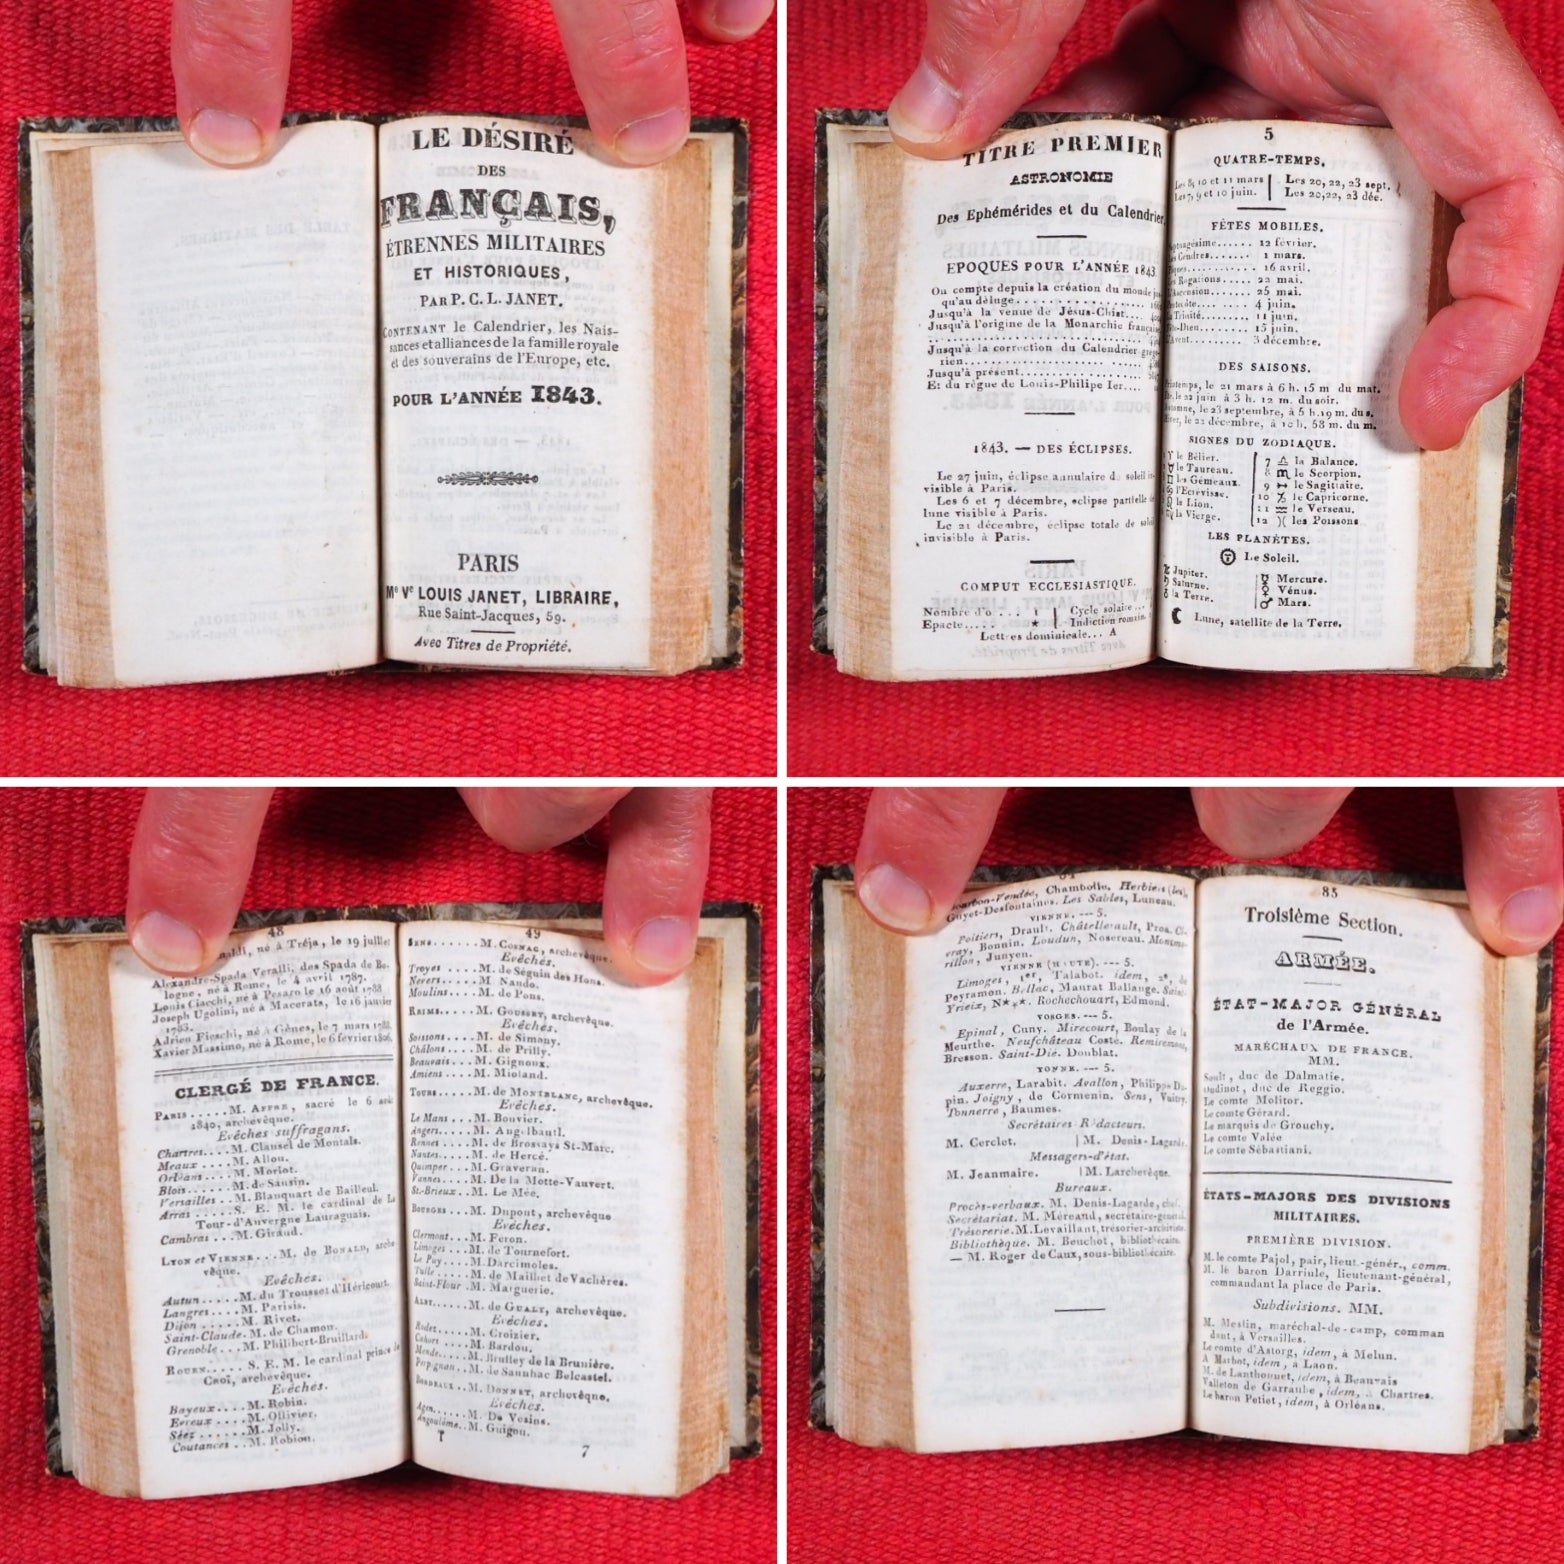 LE DÉSIRÉ
DES
FRANÇAIS,
ÉTRENNES MILITAIRES
ET HISTORIQUES,
PAR P. C. L. JANET.
CONTENANT le Calendrier, les Nais-
sances et alliances de la famille royale
et des souverains de l'Europe, etc.
POUR L'ANNÉE 1843.
PARIS
Me Ve LOUIS JANET, LIBRAIRE,
Rue Saint-Jacques, 59.
Avec Titres de Propriété.
TITRE PREMIER
ASTRONOMIE
Des Ephémérides et du Calendrier
EPOQUES POUR L'ANNÉE 1843
On compte depuis la création du monde
qu'au déluge
Jusqu'à la venue de Jésus-Chist....
Jusqu'à l'origine de la Monarchie française
Jusqu'à la correction du Calendrier grégo-
rien
Jusqu'à présent
Et du règne de Louis-Philipe Ier....
1843. — DES ÉCLIPSES.
Le 27 juin, éclipse annulaire du soleil in-
visible à Paris.
Les 6 et 7 décembre, eclipse partielle de
lune visible à Paris.
Le 21 décembre, éclipse totale de soleil
invisible à Paris.
COMPUT ECCLESIASTIQUE.
Nombre d'o ... 1 | Cycle solaire...
Epacte..... * | Indiction romain.
Lettres dominicale... A
5
QUATRE-TEMPS.
Les 8, 10 et 11 mars | Les 20, 22, 23 sept.
Les 7, 9 et 10 juin. | Les 20, 22, 23 déc.
FÊTES MOBILES.
Septuagésime...... 12 février.
Les Cendres....... 1 mars.
Pâques........... 16 avril.
Les Rogations..... 22 mai.
L'Ascension....... 25 mai.
Pentecôte......... 4 juin.
La Trinité........ 11 juin.
Fête-Dieu........ 15 juin.
L'Avent......... 3 décembre.
DES SAISONS.
Printemps, le 21 mars à 6 h. 15 m du mat.
Eté, le 22 juin à 3 h. 12 m. du soir.
Automne, le 23 septembre, à 5 h. 19 m. du s.
Hiver, le 22 décembre, à 10 h. 58 m. du m.
SIGNES DU ZODIAQUE.
♈ le Bélier. 7 ♎ la Balance.
♉ le Taureau. 8 ♏ le Scorpion.
♊ les Gémeaux. 9 ↔ le Sagittaire.
♋ l'Ecrévisse. 10 ♑ le Capricorne.
♌ le Lion. 11 ♒ le Verseau.
♍ la Vierge. 12 )( les Poissons
LES PLANÈTES.
Le Soleil.
♃ Jupiter. ☿ Mercure.
♄ Saturne. ♀ Vénus.
♁ la Terre. ♂ Mars.
Lune, satellite de la Terre.
48
né à Tréja, le 19 juillet
Alexandre-Spada Veralli, des Spada de Bo-
logne, né à Rome, le 4 avril 1787.
Louis Ciacchi, né à Pesaro le 16 août 1788
Joseph Ugolini, né à Macerata, le 16 janvier
1783.
Adrien Fieschi, né à Gênes, le 7 mars 1788.
Xavier Massimo, né à Rome, le 6 février 1806.
CLERGÉ DE FRANCE.
PARIS.....M. AFFRE, sacré le 6 août
1840, archevêque.
Evêches suffragans.
Chartres....M. Clausel de Montals.
Meaux ....M. Allou.
Orléans....M. Morlot.
Blois......M. de Sausin.
Versailles..M. Blanquart de Bailleul.
Arras .....S. E. M. le cardinal de La
Tour-d'Auvergne Lauraguais.
Cambrai ...M. Giraud.
LYON et VIENNE...M. de BONALD, arche-
vêque.
Evéchés.
Autun.....M. du Trousset d'Héricourt.
Langres....M. Parisis.
Dijon.....M. Rivet.
Saint-Claude.M. de Chamon.
Grenoble...M. Philibert-Bruillard.
ROUEN..... S. E. M. le cardinal prince de
Croï, archevêque.
Evéchés.
Bayeux....M. Robin.
Evreux....M. Ollivier.
Séez......M. Jolly.
Coutances..M. Robiou.
49
SENS......M. COSNAC, archevêque.
Evéchés.
Troyes....M. de Séguin des Hons.
Nevers....M. Naudo.
Moulins...M. de Pons.
REIMS.....M. GOUSSET, archevêque.
Evêchés.
Soissons...M. de Simony.
Châlons....M. de Prilly.
Beauvais...M. Gignoux.
Amiens....M. Mioland.
TOURS.....M. de MONTBLANC, archevêque.
Evêchés.
Le Mans...M. Bouvier.
Angers.....M. Angelbault.
Rennes ...M. de Brossays St-Marc.
Nantes....M. de Hercé.
Quimper...M. Graveran.
Vannes....M. De la Motte-Vauvert.
St.-Brieux..M. Le Mée.
BOURGES...M. Dupont, archevêque
Evêchés.
Clermont...M. Feron.
Limoges...M. de Tournefort.
Le Puy....M. Darcimoles.
Tulle.....M. de Mailhet de Vachères.
Saint-Flour.M. Marguerie.
ALBY......M. de GUALY, archevêque.
Evêchés.
Rodez.....M. Croizier.
Cahors....M. Bardou.
Mende.....M. Brulley de la Brunière.
Perpignan..M. de Saunhac Belcastel.
BORDEAUX..M. DONNET, archevêque.
Evéchés.
Agen......M. De Vesins.
Angoulême..M. Guigou.
7
Bourbon-Vendée, Chambolle. Herbiers (les),
Guyet-Desfontaines. Les Sables, Luneau.
VIENNE. --- 5.
Poitiers, Drault. Châtellerault, Proa. Ci-
vray, Bonnin. Loudun, Nosereau. Montmo-
rillon, Junyen.
VIENNE (HAUTE). --- 5.
Limoges, 1er, Talabot. idem, 2e, de
Peyramon. Bellac, Maurat Ballange. Saint-
Yrieix, N***. Rochechouart, Edmond.
VOSGES. --- 5.
Epinal, Cuny. Mirecourt, Boulay de la
Meurthe. Neufchâteau Costé. Remiremont,
Bresson. Saint-Dié. Doublat.
YONNE. --- 5.
Auxerre, Larabit. Avallon, Philippe Du-
pin. Joigny, de Cormenin. Sens, Vuitry.
Tonnerre, Baumes.
Secrétaires Rédacteurs.
M. Cerclet. | M. Denis-Lagarde.
Messagers-d'état.
M. Jeanmaire. | M. Larchevêque.
Bureaux.
Procès-verbaux. M. Denis-Lagarde, chef.
Secrétariat. M. Méreand, secrétaire-général.
Trésorerie. M. Levaillant, trésorier-archiviste.
Bibliothèque. M. Beuchot, bibliothécaire.
— M. Roger de Caux, sous-bibliothécaire.
85
Troisième Section.
ARMÉE.
ÉTAT-MAJOR GÉNÉRAL
de l'Armée.
MARÉCHAUX DE FRANCE.
MM.
Soult, duc de Dalmatie.
Oudinot, duc de Reggio.
Le comte Molitor.
Le comte Gérard.
Le marquis de Grouchy.
Le comte Valée
Le comte Sébastiani.
ÉTATS-MAJORS DES DIVISIONS
MILITAIRES.
PREMIÈRE DIVISION.
M. le comte Pajol, pair, lieut.-génér., comm.
M. le baron Darriule, lieutenant-général,
commandant la place de Paris.
Subdivisions. MM.
M. Meslin, maréchal-de-camp, comman
dant, à Versailles.
Le comte d'Astorg, idem, à Melun.
A Marbot, idem, à Laon.
M. de Lanthonnet, idem, à Beauvais
Valleton de Garraube, idem, à Chartres.
Le baron Petiet, idem, à Orléans.